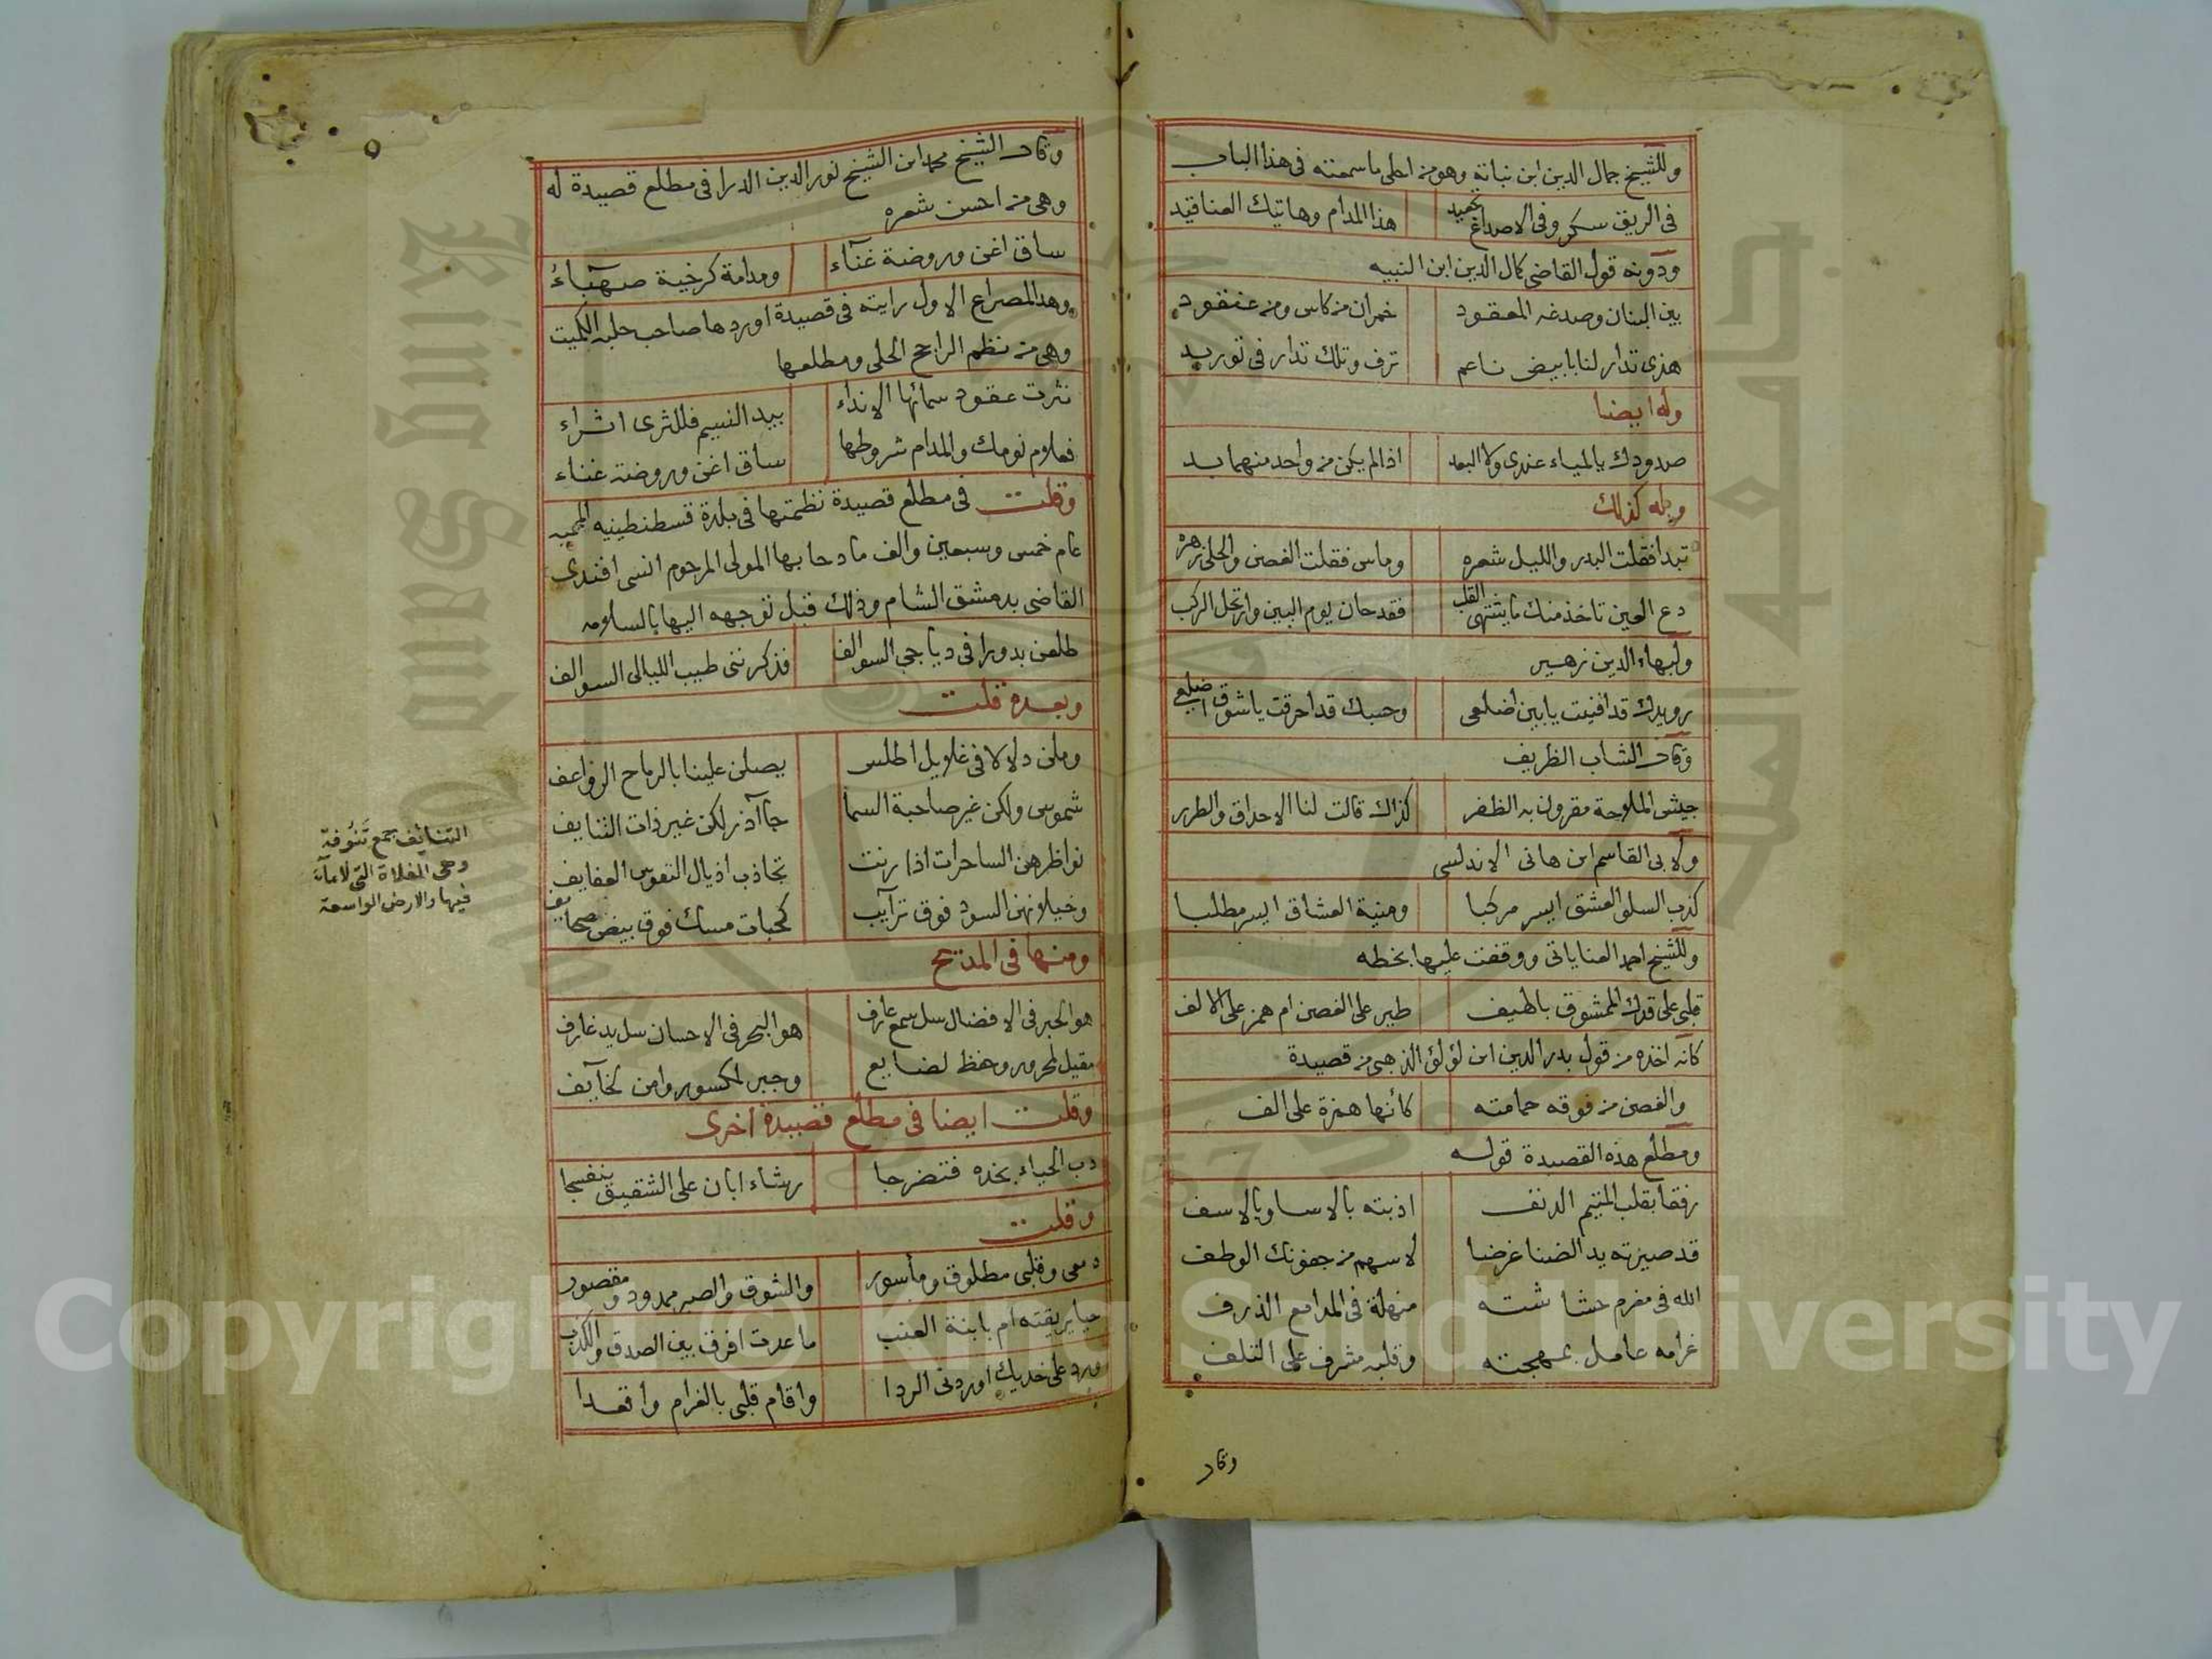 وللشيخ جمال الدين ابن نباتة وهو من احلى ما سمعته فى هذا الباب
فى الريق سكر وفى الاصداغ تجعيد هذا المدام وهاتيك العناقيد
ودونه قول القاضى كمال الدين ابن النبيه
بين البنان وصدغه المعقود خمران من كاس ومن عنقود
هذى تدار لنا بابيض ناعم ترف وتلك تدار فى توريد
وله ايضا
صدودك يا لمياء عندى ولا البعد اذا لم يكن من واحد منهما بد
وله كذلك
تبدا فقلت البدر والليل شعره وماس فقلت الغصن والحلى زهره
دع العين تاخذ منك ما يشتهى القلب فقد حان يوم البين وارتحل الركب
ولبهاء الدين زهير
رويدك قد افنيت يا بين اضلعى وحسبك قد احرقت يا شوق اضلعى
وقال الشاب الظريف
جيش الملاحة مقرون به الظفر كذاك قالت لنا الاحداق والطرر
ولابى القاسم ابن هانى الاندلسى
كذب السلو العشق ايسر مركبا ومنية العشاق ايسر مطلبا
وللشيخ احمد العناياتى ووقفت عليها بخطه
قلبى على قدك الممشوق بالهيف طير على الغصن ام همز على الالف
كانه اخذه من قول بدر الدين ابن لؤلؤ الذهبى من قصيدة
والغصن من فوقه حمامته كأنها همزة على الف
ومطلع هذه القصيدة قوله
رفقا بقلب المتيم الدنف اذبته بالاسا وبالاسف
قد صيرته يد الضنا غرضا لاسهم من جفونك الوطف
الله فى مغرم حشاشته منهلة فى المدامع الذرف
غرامه عامل بمهجته وقلبه مشرف على التلف
وقال
وقال الشيخ محمد ابن الشيخ نور الدين الدرا فى مطلع قصيدة له
وهى من احسن شعره
ساق اغن وروضة غنآء ومدامة كرخية صهبآء
وهذا المصراع الاول رايته فى قصيدة اوردها صاحب حلبة الكميت
وهى من نظم الراجح الحلى ومطلعها
نثرت عقود سمائها الانداء بيد النسيم فللثرى اثراء
فعلام نومك والمدام شروطها ساق اغن وروضة غناء
وقلت فى مطلع قصيدة نظمتها فى بلدة قسطنطينيه المحميه
عام خمس وسبعين والف مادحا بها المولى المرحوم انسى افندى
القاضى بدمشق الشام وذلك قبل توجهه اليها بالسلامه
طلعن بدورا فى دياجى السوالف فذكرننى طيب الليالى السوالف
وبعده قلت
وملن دلالا فى غلايل اطلس يصلن علينا بالرماح الرواعف
شموس ولكن غير صاحبة السما جاآذر لكن غير ذات التنايف
نواظرهن الساحرات اذا رنت تجاذب اذيال النفوس العفايف
وخيلانهن السود فوق ترآيب كحبات مسك فوق بيض صحايف
ومنها فى المديح
هو الحبر فى الافضال سل سمع عارف هو البحر فى الاحسان سل يد غارف
مقيل لمحرور وحفظ لضايع وجبر لمكسور وامن لخآيف
وقلت ايضا فى مطلع قصيدة اخرى
دب الحياء بخده فتضرجا رشاء ابان على الشقيق بنفسجا
وقلت
دمعى وقلبى مطلوق ومأسور والشوق والصبر ممدود ومقصور
حيا بريقته ام بابنة العنب ما عدت افرق بين الصدق والكذب
ورد على خديك اوردنى الردا واقام قلبى بالغرام واقعدا
التنايف جمع تنوفة
وهى المفلاة التى لا مآء
فيها والارض الواسعة
Copyright © King Saud University
King Saud University
جامعة الملك سعود
1957